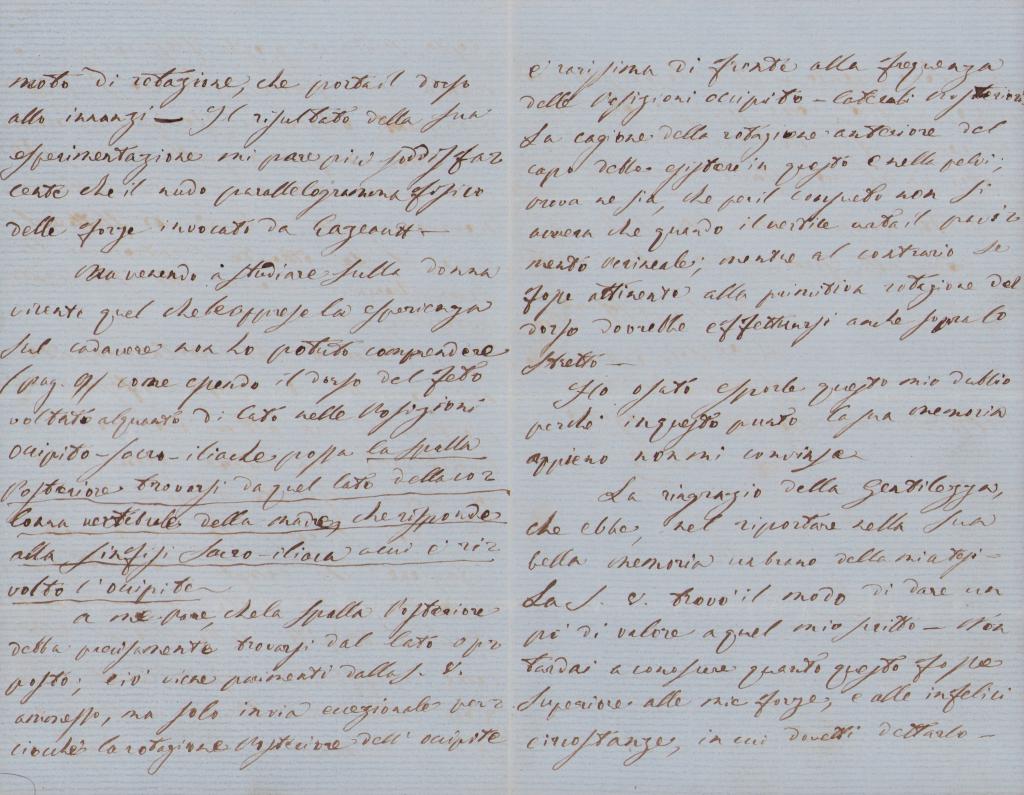 moto di rotazione, che porta il dorso
allo innanzi — Il risultato della sua
esperimentazione mi pare più soddisfa=
cente che il nudo parallelogramma fisico
delle forze invocato da Cazeaux —
Ma venendo a studiare sulla donna
vivente quel che le apprese la esperienza
sul cadavere non ho potuto comprendere
(pag. 9) come essendo il dorso del feto
voltato alquanto di lato nelle Posizioni
Occipito-sacro-iliache possa la spalla
Posteriore trovarsi da quel lato della co=
lonna vertebrale della madre, che risponde
alla sinfisi sacro-iliaca a cui è ri=
volto l'occipite —
a me pare, che la spalla Posteriore
debba precisamente trovarsi dal lato op=
posto; ciò viene parimenti dalla S. V.
ammesso, ma solo in via eccezionale per=
ciocchè la rotazione Posteriore dell'occipite
è rarissima di fronte alla frequenza
delle Posizioni occipito-laterali posteriori
La cagione della rotazione anteriore del
capo deve esistere in questo e nella pelvi;
prova ne sia, che per il consueto non si
avvera che quando il vertice urta il pavi=
mento perineale; mentre al contrario se
fosse attinente alla primitiva rotazione del
dorso dovrebbe effettuarsi anche sopra lo
stretto —
Ho osato esporle questo mio dubbio
perchè in questo punto la sua memoria
appieno non mi convinse
La ringrazio della Gentilezza,
che ebbe, nel riportare nella sua
bella memoria un brano della mia tesi —
La S. V. trovò il modo di dare un
po' di valore a quel mio scritto — Non
tardai a conoscere quanto questo fosse
superiore alle mie forze, e alle infelici
circostanze, in cui dovetti dettarlo —